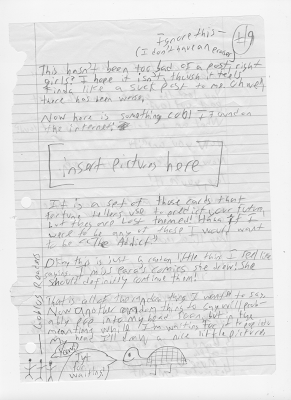 Ignore this -
(I don't have an eraser)
49
This hasn't been too bad of a post, right
girls? I hope it isn't, though it feels
kinda like a suck post to me. Oh well,
there has been worse.
Now here is something cool I found on
the internet:
insert picture here
It is a set of those cards that
fortune tellers use to predict your future,
but they are themed! Haha if I
were to be any of those I would want
to be "The Addict"
Okay this is just a random little thing I feel like
saying. I miss comics she drew. She
should definitely continue them!
That is all of the random things I want to say.
Now another random thing to say will
pop into my head soon, but in the
meantime while I'm waiting for it to pop into
my head I'll draw a nice little picture:
Goodles Random
I'm
waiting!